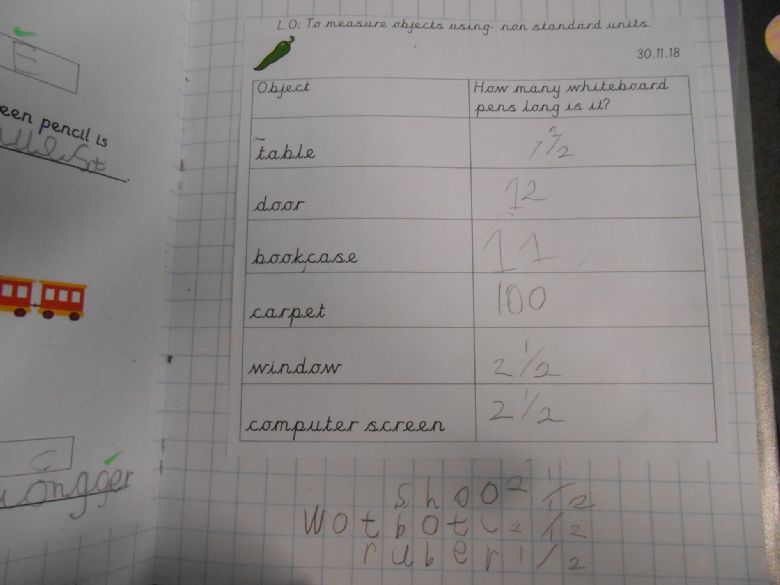 L.O: To measure objects using non standard units
30.11.18
Object How many whiteboard
pens long is it?
table 1 1/2
door 12
bookcase 11
carpet 100
window 2 1/2
computer screen 2 1/2
shoo 2 1/2
wotbotl 2 1/2
ruber 1/2
E
een pencil is
ongger